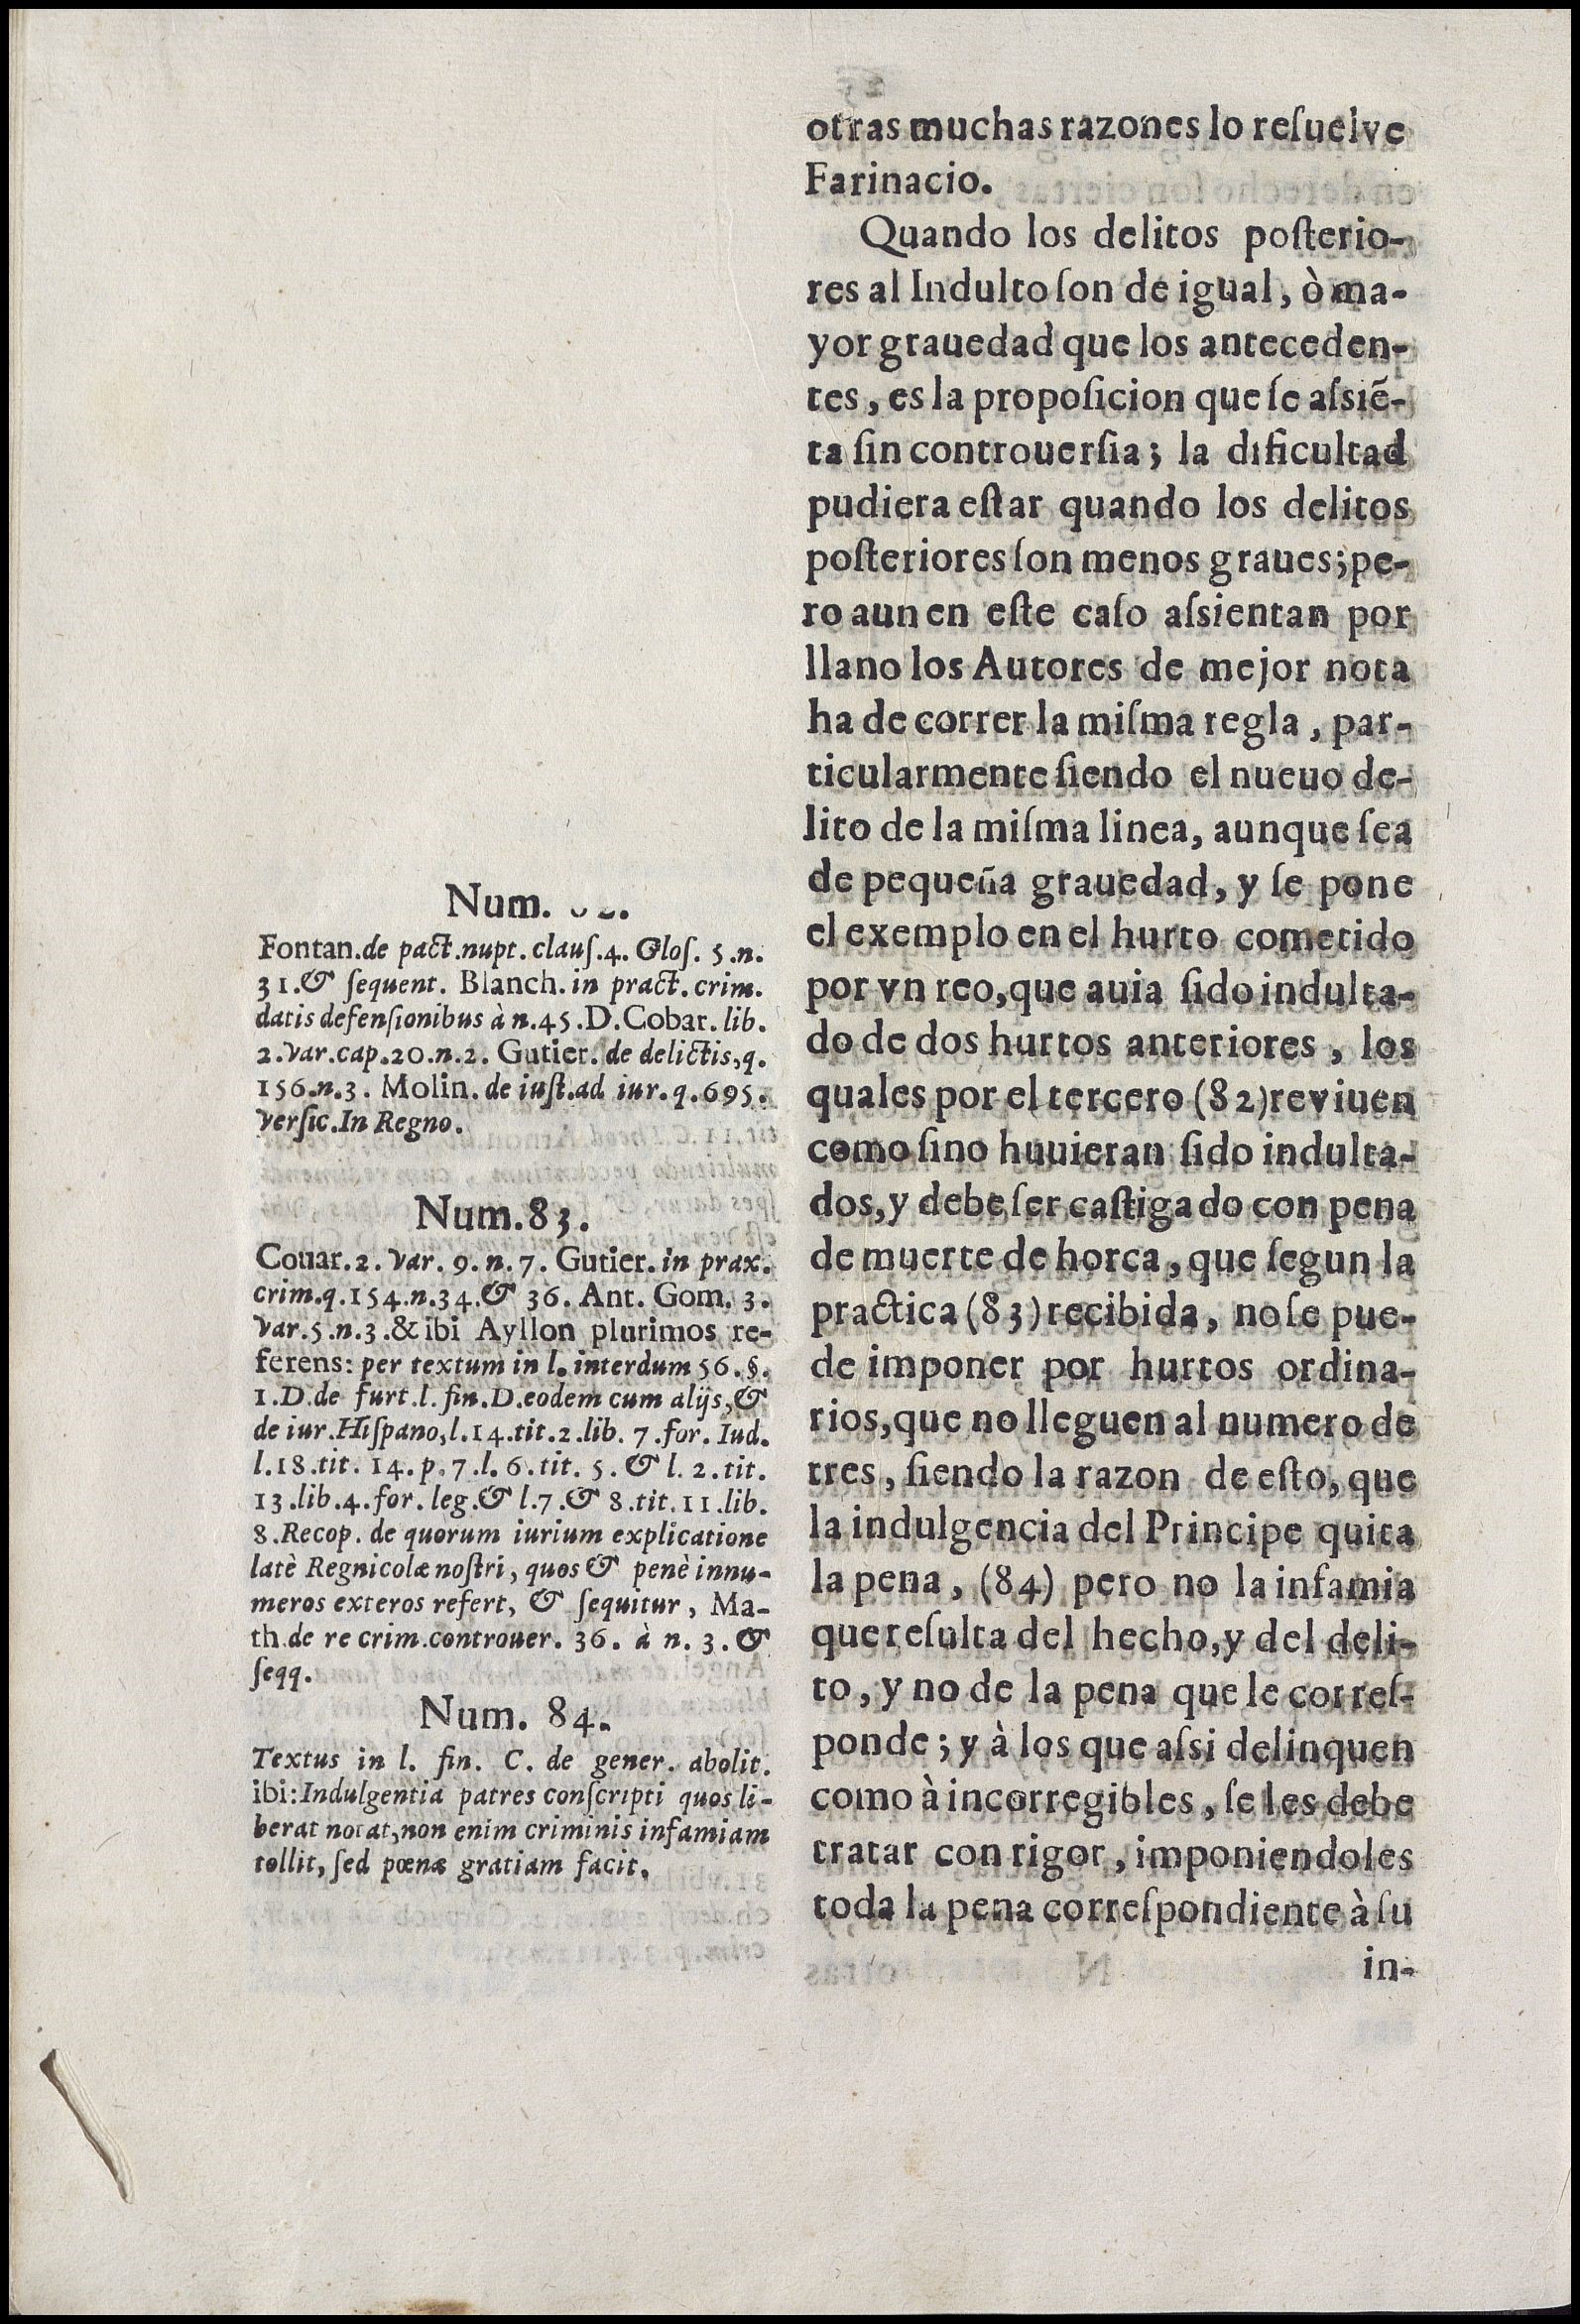 otras muchas razones lo reſuelve
Farinacio.
Quando los delitos poſterio-
res al Indulto ſon de igual, ò ma-
yor grauedad que los anteceden-
tes, es la propoſicion que ſe aſsiẽ-
ta ſin controuerſia; la dificultad
pudiera eſtar quando los delitos
poſteriores ſon menos graues; pe-
ro aun en eſte caſo aſsientan por
llano los Autores de mejor nota
ha de correr la miſma regla, par-
ticularmente ſiendo el nueuo de-
lito de la miſma linea, aunque ſea
de pequeña grauedad, y ſe pone
el exemplo en el hurto cometido
por vn reo, que auia ſido indulta-
do de dos hurtos anteriores, los
quales por el tercero (82) reviuen
como ſino huuieran ſido indulta-
dos, y debe ſer caſtigado con pena
de muerte de horca, que ſegun la
practica (83) recibida, no ſe pue-
de imponer por hurtos ordina-
rios, que no lleguen al numero de
tres, ſiendo la razon de eſto, que
la indulgencia del Principe quita
la pena, (84) pero no la infamia
que reſulta del hecho, y del deli-
to, y no de la pena que le correſ-
ponde; y à los que aſsi delinquen
como à incorregibles, ſe les debe
tratar con rigor, imponiendoles
toda la pena correſpondiente à ſu
in-
Num. 82.
Fontan. de pact. nupt. clauſ. 4. Gloſ. 5. n.
31. & ſequent. Blanch. in pract. crim.
datis defenſionibus à n. 45. D. Cobar. lib.
2. var. cap. 20. n. 2. Gutier. de delictis, q.
156. n. 3. Molin. de iuſt. ad iur. q. 695.
verſic. In Regno.
Num. 83.
Couar. 2. var. 9. n. 7. Gutier. in prax.
crim. q. 154. n. 34. & 36. Ant. Gom. 3.
var. 5. n. 3. & ibi Ayllon plurimos re-
ferens: per textum in l. interdum 56. §.
1. D. de furt. l. fin. D. eodem cum alijs, &
de iur. Hiſpano, l. 14. tit. 2. lib. 7. for. Iud.
l. 18. tit. 14. p. 7. l. 6. tit. 5. & l. 2. tit.
13. lib. 4. for. leg. & l. 7. & 8. tit. 11. lib.
8. Recop. de quorum iurium explicatione
latè Regnicolæ noſtri, quos & penè innu-
meros exteros refert, & ſequitur, Ma-
th. de re crim. controuer. 36. à n. 3. &
ſeqq.
Num. 84.
Textus in l. fin. C. de gener. abolit.
ibi: Indulgentia patres conſcripti quos li-
berat notat, non enim criminis infamiam
tollit, ſed pœnæ gratiam facit.